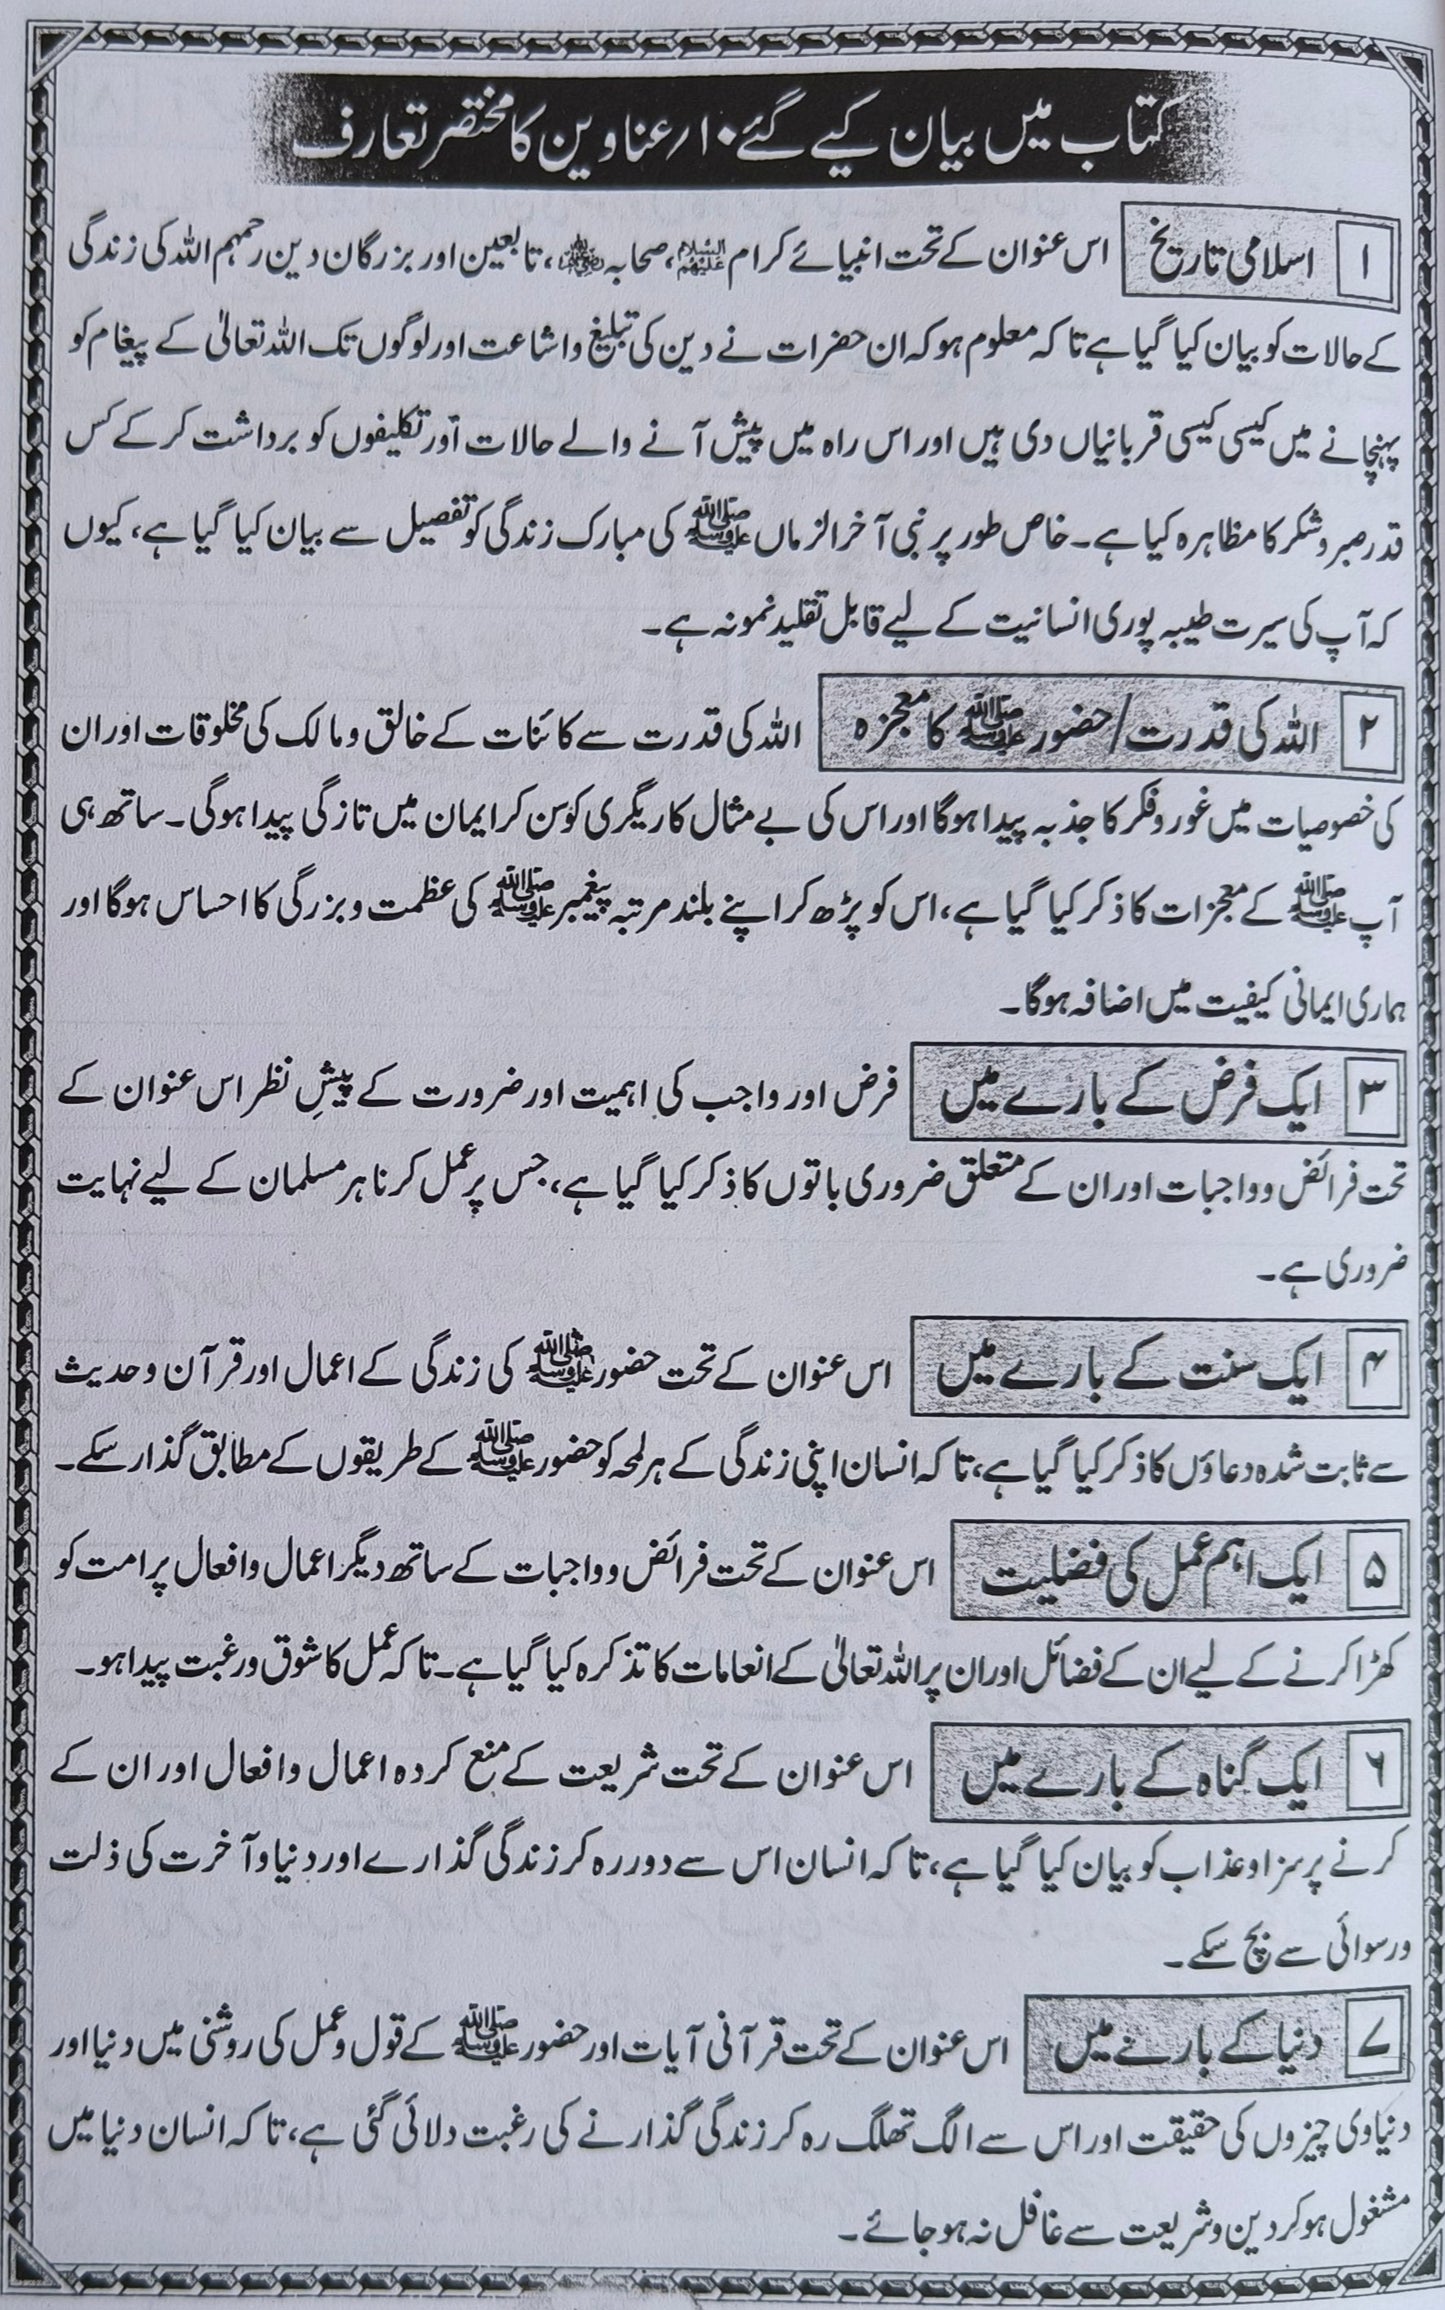 کتاب میں بیان کیے گئے ۱۰؍ عناوین کا مختصر تعارف
۱ اسلامی تاریخ اس عنوان کے تحت انبیائے کرام علیہم السلام، صحابہ رضی اللہ عنہم، تابعین اور بزرگان دین رحمہم اللہ کی زندگی
کے حالات کو بیان کیا گیا ہے تاکہ معلوم ہو کہ ان حضرات نے دین کی تبلیغ و اشاعت اور لوگوں تک اللہ تعالیٰ کے پیغام کو
پہنچانے میں کیسی کیسی قربانیاں دی ہیں اور اس راہ میں پیش آنے والے حالات اور تکلیفوں کو برداشت کر کے کس
قدر صبر و شکر کا مظاہرہ کیا ہے۔ خاص طور پر نبی آخر الزماں ﷺ کی مبارک زندگی کو تفصیل سے بیان کیا گیا ہے، کیوں
کہ آپ کی سیرت طیبہ پوری انسانیت کے لیے قابل تقلید نمونہ ہے۔
۲ اللہ کی قدرت/حضور ﷺ کا معجزہ اللہ کی قدرت سے کائنات کے خالق و مالک کی مخلوقات اور ان
کی خصوصیات میں غور و فکر کا جذبہ پیدا ہوگا اور اس کی بے مثال کاریگری کو سن کر ایمان میں تازگی پیدا ہوگی۔ ساتھ ہی
آپ ﷺ کے معجزات کا ذکر کیا گیا ہے، اس کو پڑھ کر اپنے بلند مرتبہ پیغمبر ﷺ کی عظمت و بزرگی کا احساس ہوگا اور
ہماری ایمانی کیفیت میں اضافہ ہوگا۔
۳ ایک فرض کے بارے میں فرض اور واجب کی اہمیت اور ضرورت کے پیشِ نظر اس عنوان کے
تحت فرائض و واجبات اور ان کے متعلق ضروری باتوں کا ذکر کیا گیا ہے، جس پر عمل کرنا ہر مسلمان کے لیے نہایت
ضروری ہے۔
۴ ایک سنت کے بارے میں اس عنوان کے تحت حضور ﷺ کی زندگی کے اعمال اور قرآن و حدیث
سے ثابت شدہ دعاؤں کا ذکر کیا گیا ہے، تاکہ انسان اپنی زندگی کے ہر لمحہ کو حضور ﷺ کے طریقوں کے مطابق گذار سکے۔
۵ ایک اہم عمل کی فضلیت اس عنوان کے تحت فرائض و واجبات کے ساتھ دیگر اعمال و افعال پر امت کو
کھڑا کرنے کے لیے ان کے فضائل اور ان پر اللہ تعالیٰ کے انعامات کا تذکرہ کیا گیا ہے۔ تاکہ عمل کا شوق و رغبت پیدا ہو۔
۶ ایک گناہ کے بارے میں اس عنوان کے تحت شریعت کے منع کردہ اعمال و افعال اور ان کے
کرنے پر سزا و عذاب کو بیان کیا گیا ہے، تاکہ انسان اس سے دور رہ کر زندگی گذارے اور دنیا و آخرت کی ذلت
و رسوائی سے بچ سکے۔
۷ دنیا کے بارے میں اس عنوان کے تحت قرآنی آیات اور حضور ﷺ کے قول و عمل کی روشنی میں دنیا اور
دنیاوی چیزوں کی حقیقت اور اس سے الگ تھلگ رہ کر زندگی گذارنے کی رغبت دلائی گئی ہے، تاکہ انسان دنیا میں
مشغول ہو کر دین و شریعت سے غافل نہ ہو جائے۔